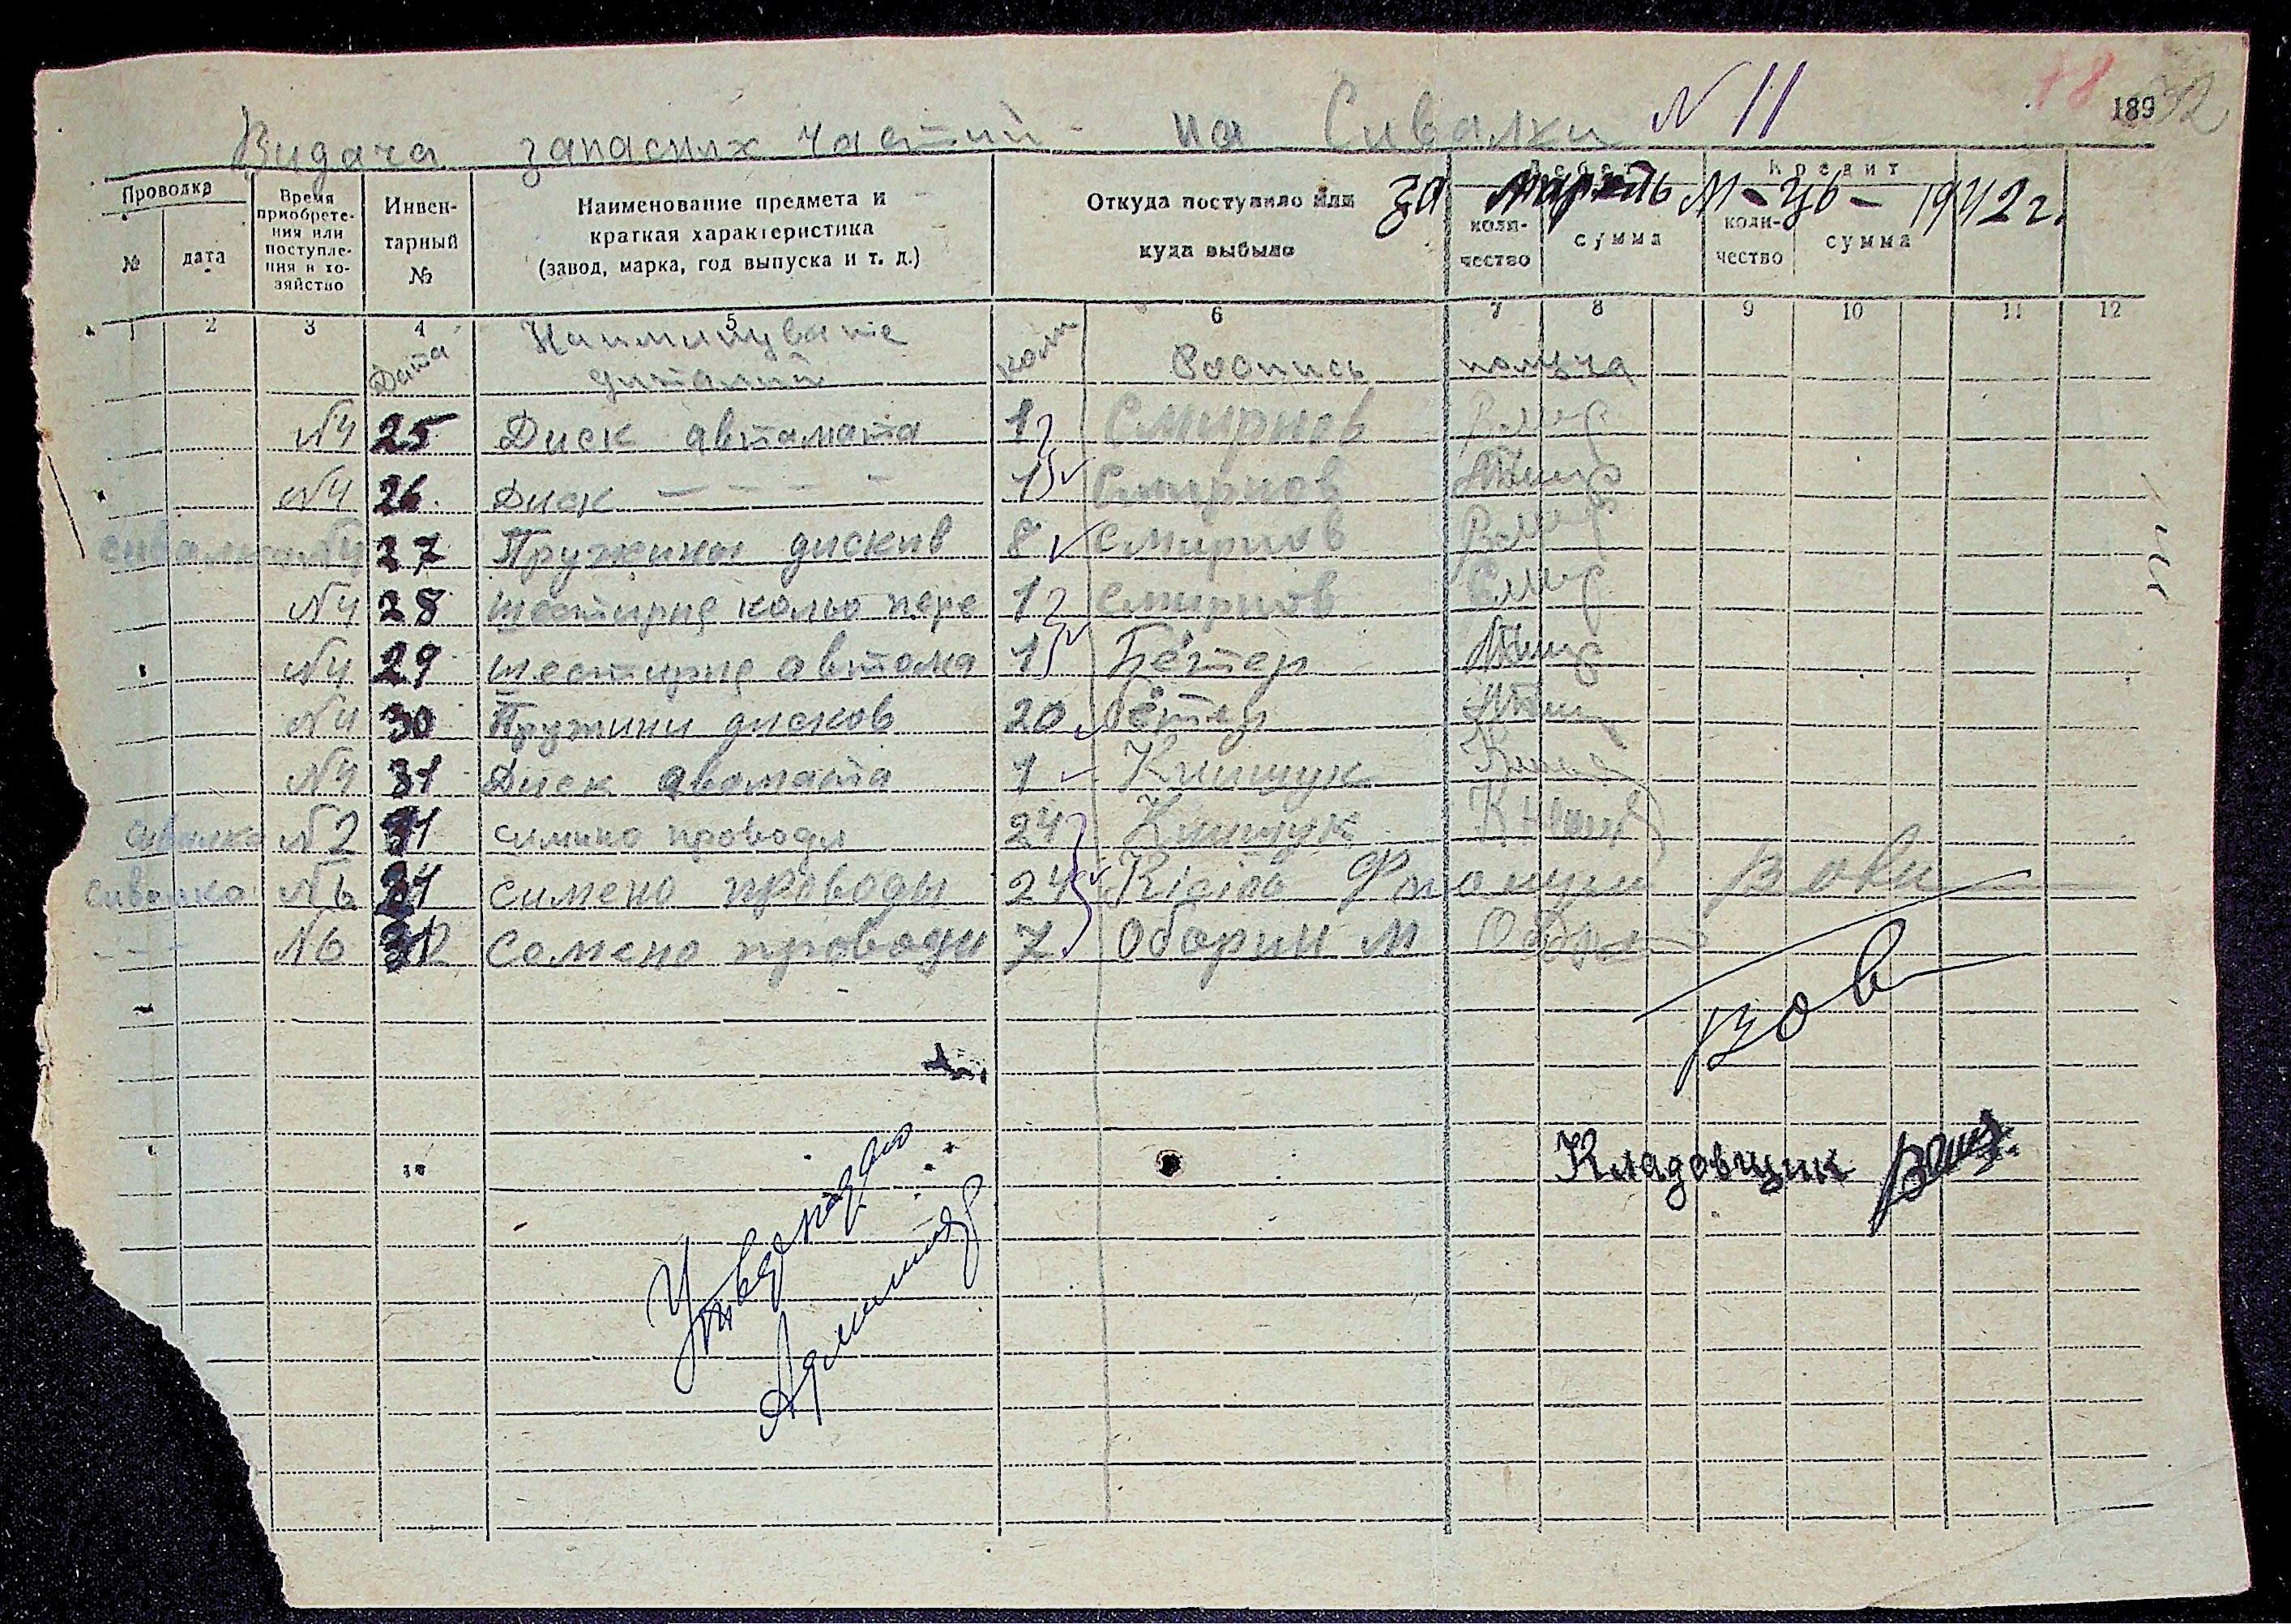 78
189 32
Видача запасних частий на Сивалки N 11
за М-ць - 1942 г.
Проводка
№
дата
Время приобрете-
ния или
поступле-
ния в хо-
зяйство
Инвен-
тарный
№
Наименование предмета и
краткая характеристика
(завод, марка, год выпуска и т. д.)
Откуда поступило или
куда выбыло
Дебет
коли-
чество
сумма
Кредит
коли-
чество
сумма
1 2 3 4 5 6 7 8 9 10 11 12
Дата Наиминувание коли Роспись получа
диталий
N4 25 Диск автамата 1 Смирнов
N4 26. Диск - - - - 1 Смирнов
сивалка N4 27 Пружини дискив 8 Смирнов
N4 28 шестирня кольо пере 1 Смирнов
N4 29 шестирня автома 1 Бётер
N4 30 Пружини дисков 20 Бётер
N4 31 Диск авомата 1 Кишчук
сивалка N2 31 симино проводи 24 Кишчук
Сивалка N6 31 симено проводы 24
- - - N6 Семено проводи 7 Оборин М
Кладовщик
Утверждаю